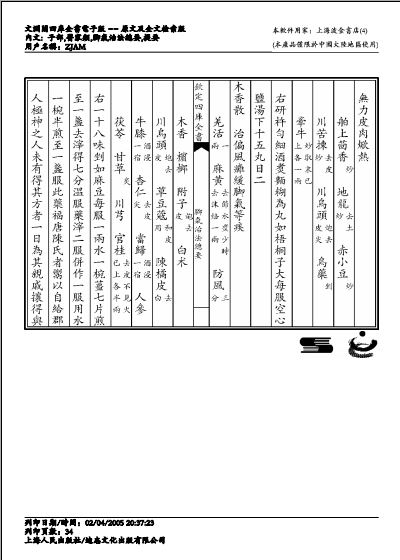 文淵閣四庫全書電子版 -- 原文及全文檢索版
內文：子部,醫家類,腳氣治法總要,提要
用戶名稱：ZJAM
本軟件用家：上海波金書店(4)
(本產品僅限於中國大陸地區使用)
無力皮肉燉熱
舶上茴香炒 地龍去土炒 赤小豆炒
川苦楝炒去皮 川烏頭炮去皮 烏藥剉
牽牛炒取末已上各一兩
右研杵勻細酒煑麵糊為丸如梧桐子大每服空心
鹽湯下十五丸日二
木香散 治偏風癱緩脚氣等疾
羌活一兩 麻黃去節水煮少時去沫焙一兩 防風三分
欽定四庫全書
脚氣治法總要
木香 檳榔 附子炮去皮 白朮
川烏頭炮去皮 草豆蔻和皮用 陳橘皮去白
牛膝酒浸一宿 杏仁去皮尖 當歸酒浸一宿 人參
茯苓 甘草炙 川芎 官桂去皮不見火已上各半兩
右一十八味剉如麻豆每服一兩水一椀蓋七片煎
至一盞去滓得七分溫服藥滓二服併作一服用水
一椀半煎至一盞服此藥福唐陳氏者鬻以自給郡
人極神之人未有得其方者一日為其親戚攘得與
列印日期/時間：02/04/2005 20:37:23
列印頁數：34
上海人民出版社/迪志文化出版有限公司